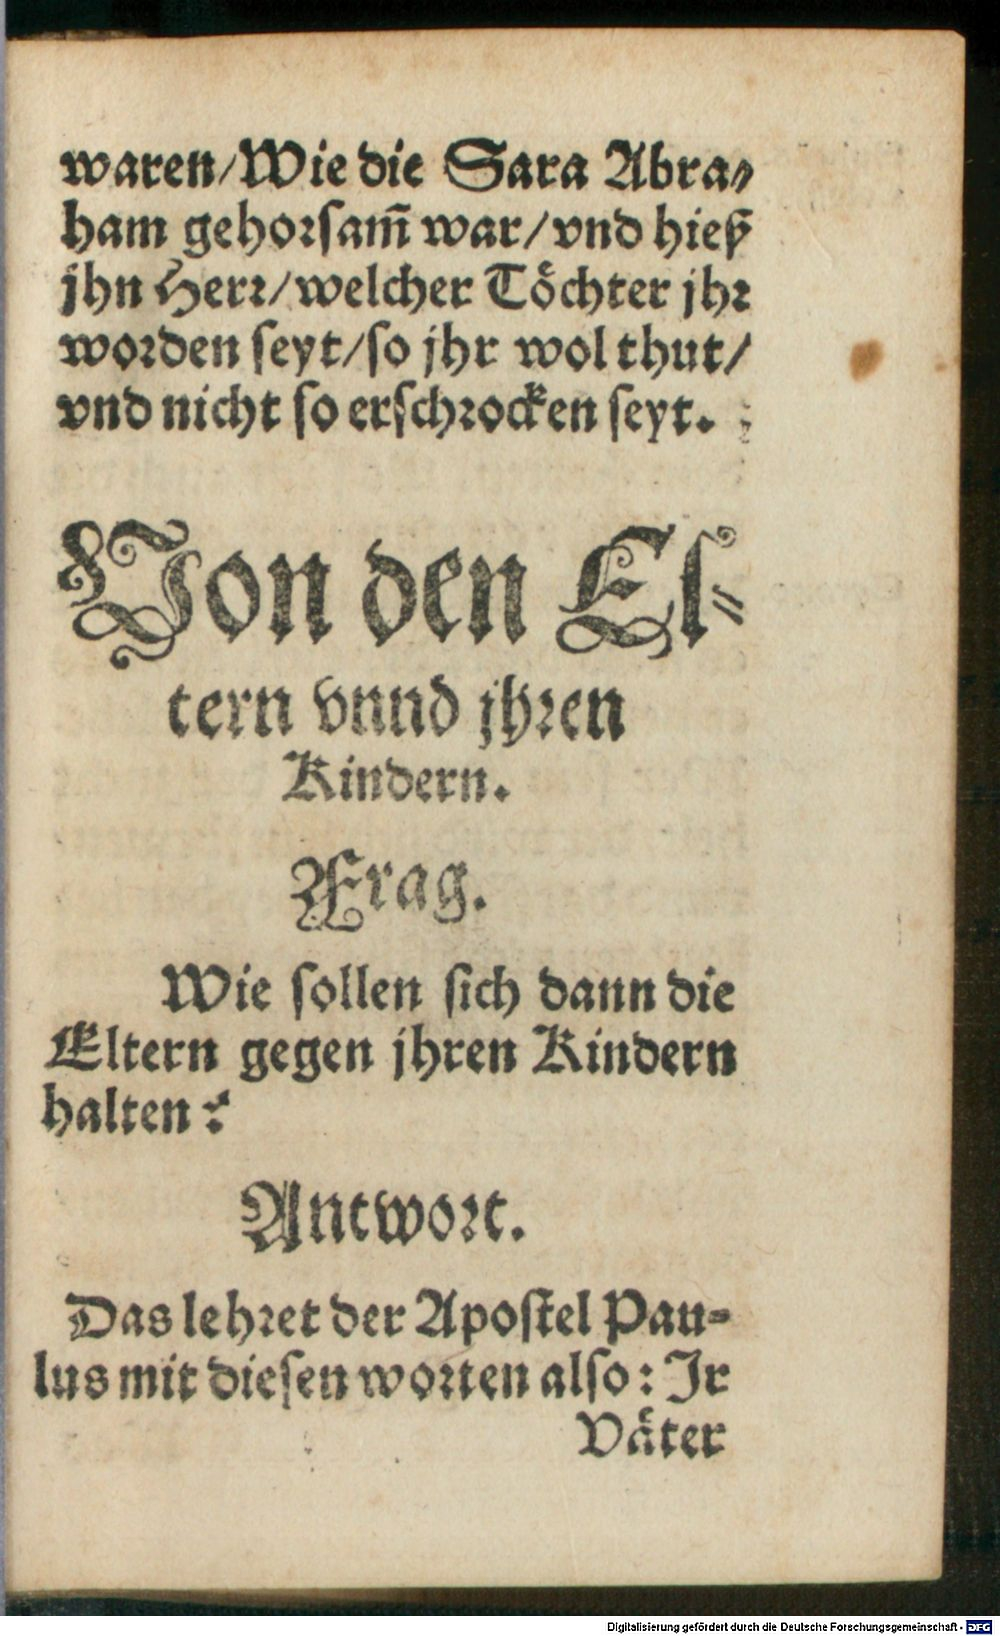 waren/Wie die Sara Abra-
ham gehorsam̄ war/vnd hieß
jhn Herr/welcher Töchter jhr
worden seyt/so jhr wol thut/
vnd nicht so erschrocken seyt.
Von den El-
tern vnnd jhren
Kindern.
Frag.
Wie sollen sich dann die
Eltern gegen jhren Kindern
halten?
Antwort.
Das lehret der Apostel Pau-
lus mit diesen worten also: Jr
Väter
Digitalisierung gefördert durch die Deutsche Forschungsgemeinschaft - DFG